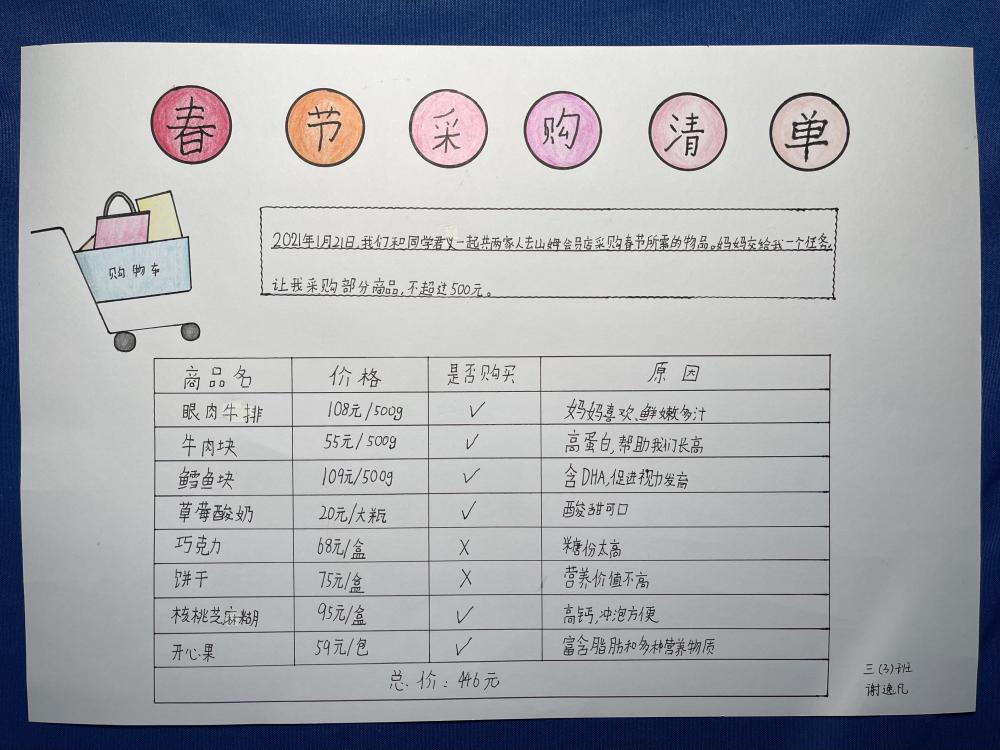 春节采购清单
购物车
2021年1月21日,我们和同学君义一起共两家人去山姆会员店采购春节所需的物品。妈妈交给我一个任务,
让我采购部分商品,不超过500元。
商品名 价格 是否购买 原因
眼肉牛排 108元/500g ✓ 妈妈喜欢、鲜嫩多汁
牛肉块 55元/500g ✓ 高蛋白,帮助我们长高
鳕鱼块 109元/500g ✓ 含DHA,促进视力发育
草莓酸奶 20元/大瓶 ✓ 酸甜可口
巧克力 68元/盒 X 糖份太高
饼干 75元/盒 X 营养价值不高
核桃芝麻糊 95元/盒 ✓ 高钙,冲泡方便
开心果 59元/包 ✓ 富含脂肪和多种营养物质
总价:446元
三(3)班
谢逸凡